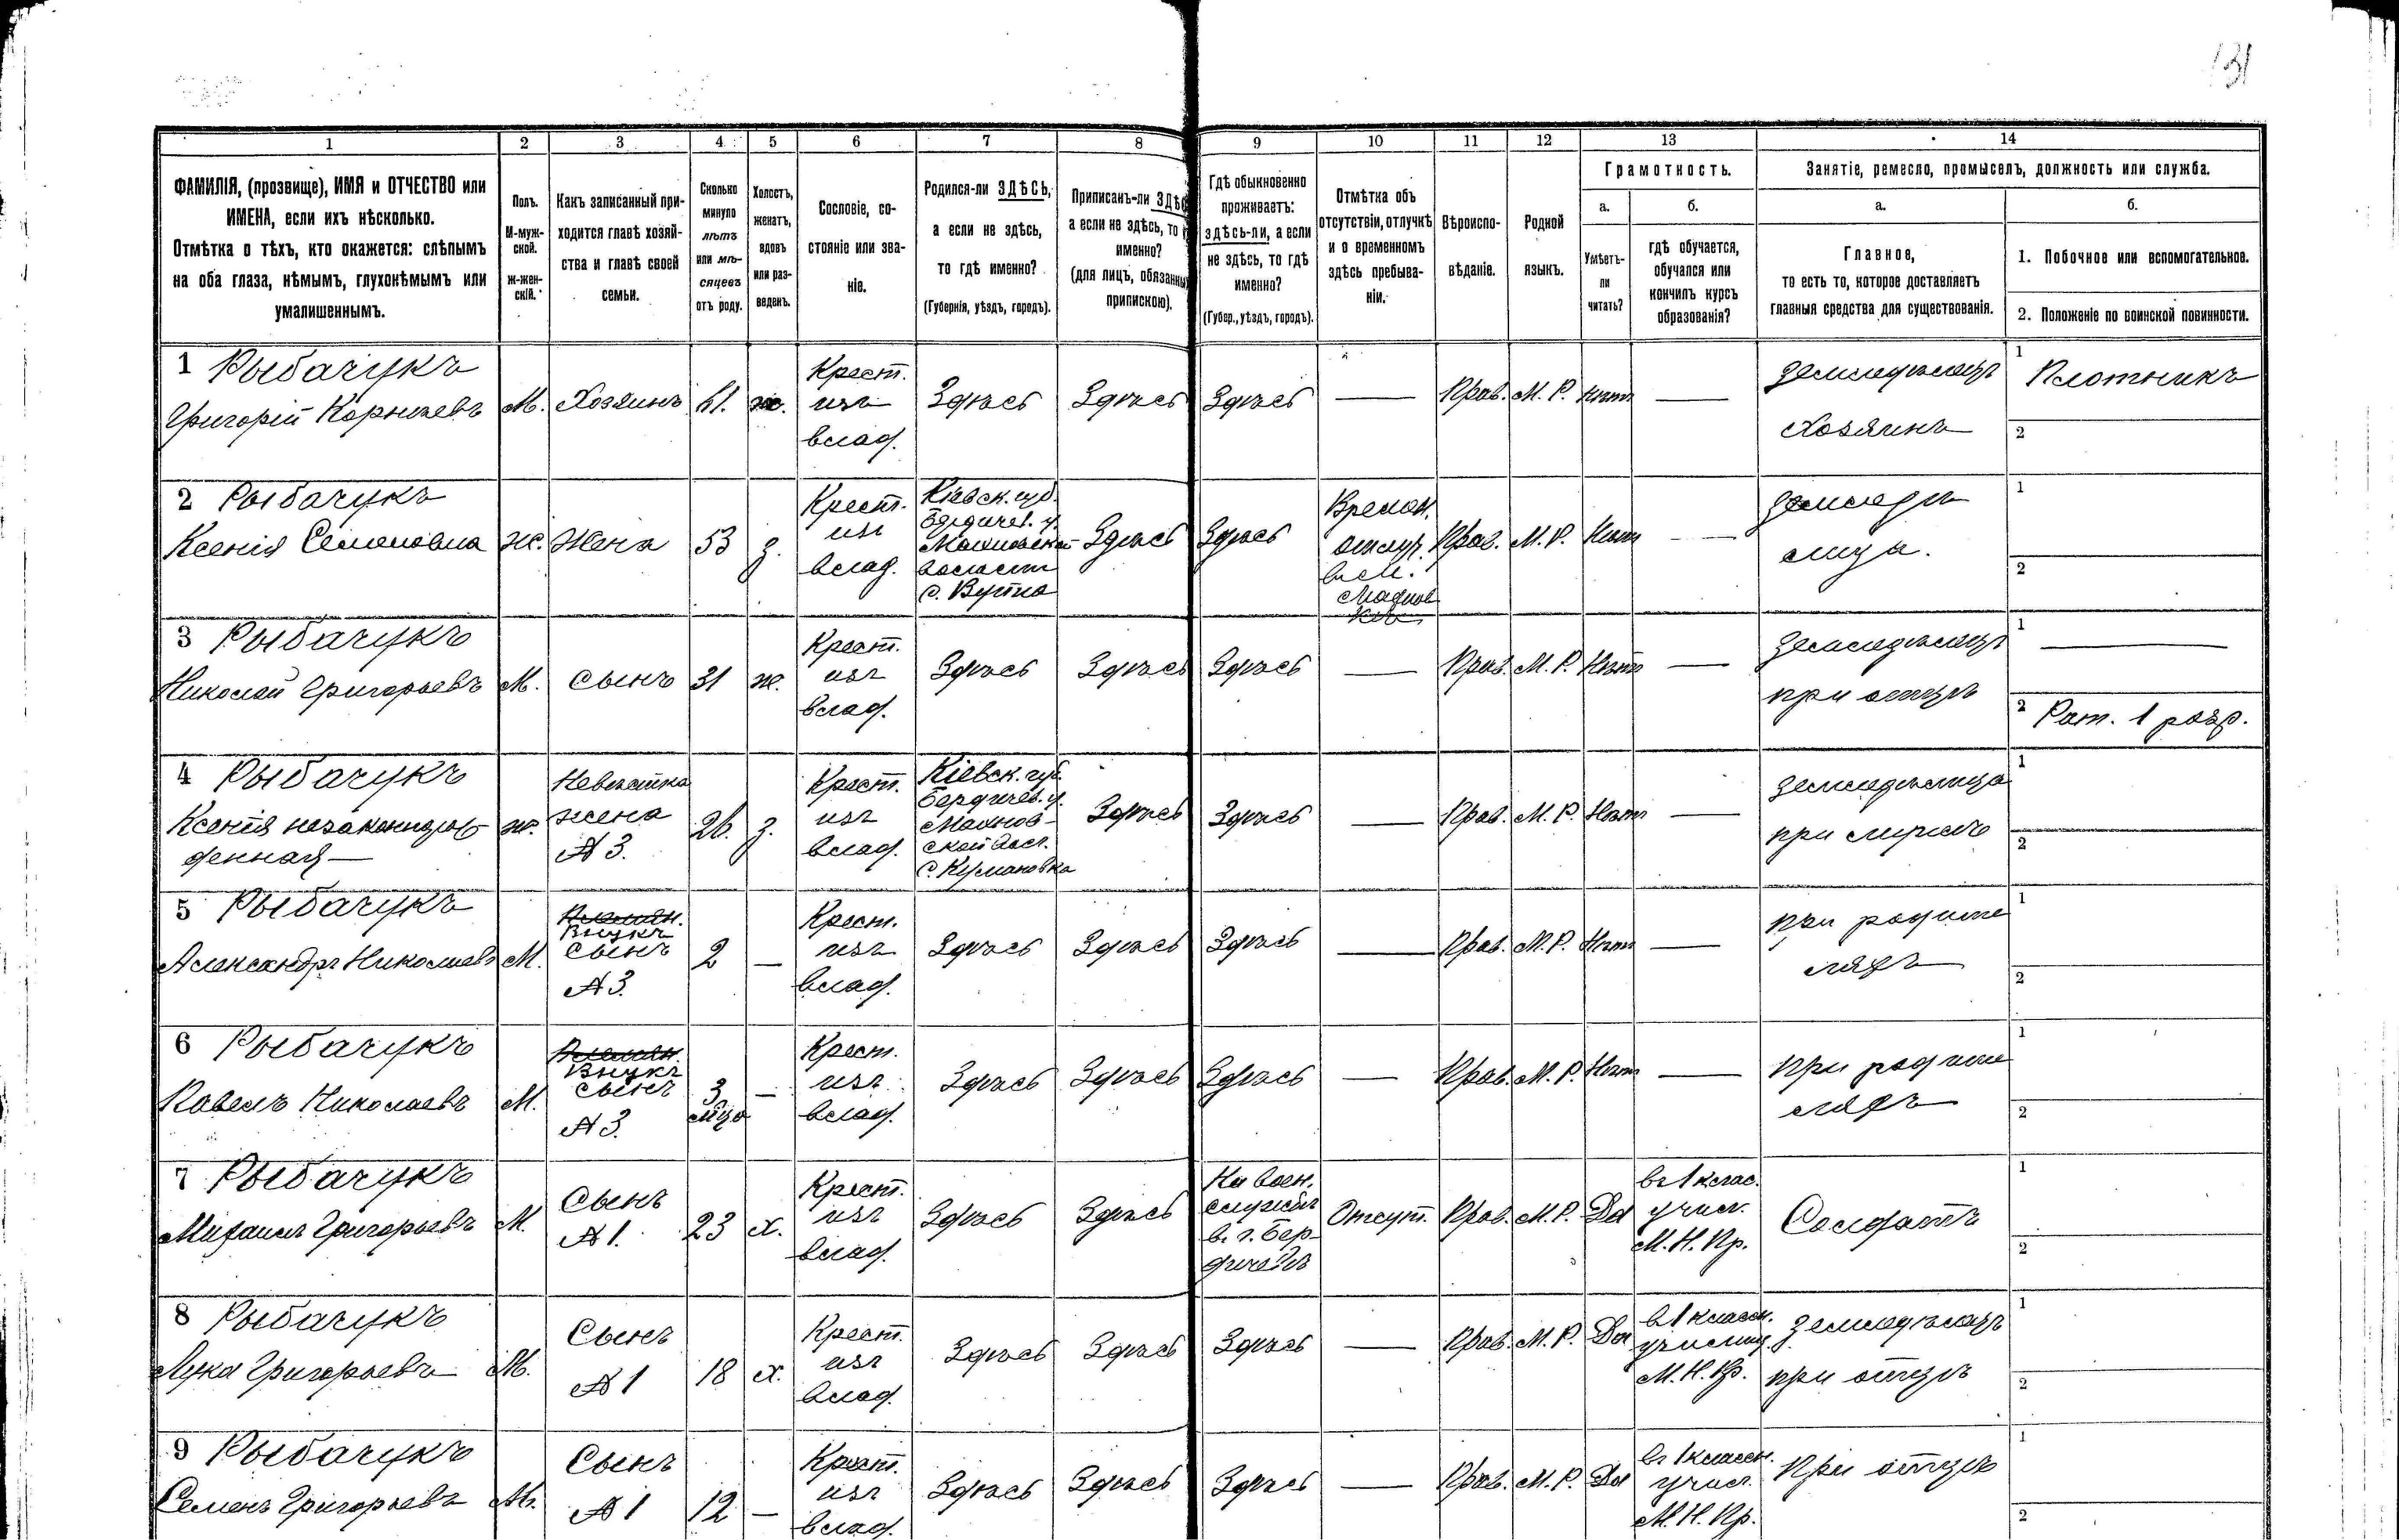 131
1 2 3 4 5 6 7 8 9 10 11 12 13 14
ФАМИЛІЯ, (прозвище), ИМЯ и ОТЧЕСТВО или
ИМЕНА, если ихъ нѣсколько.
Отмѣтка о тѣхъ, кто окажется: слѣпымъ
на оба глаза, нѣмымъ, глухонѣмымъ или
умалишеннымъ.
Полъ.
М-муж-
ской.
ж-жен-
скій.
Какъ записанный при-
ходится главѣ хозяй-
ства и главѣ своей
семьи.
Сколько
минуло
лѣтъ
или мѣ-
сяцевъ
отъ роду.
Холостъ,
женатъ,
вдовъ
или раз-
веденъ.
Сословіе, со-
стояніе или зва-
ніе.
Родился-ли ЗДѢСЬ,
а если не здѣсь,
то гдѣ именно?
(Губернія, уѣздъ, городъ).
Приписанъ-ли ЗДѢС
а если не здѣсь, то г
именно?
(для лицъ, обязанны
припискою).
Гдѣ обыкновенно
проживаетъ:
здѣсь-ли, а если
не здѣсь, то гдѣ
именно?
(Губер., уѣздъ, городъ).
Отмѣтка объ
отсутствіи, отлучкѣ
и о временномъ
здѣсь пребыва-
ніи.
Вѣроиспо-
вѣданіе.
Родной
языкъ.
Грамотность.
а.
Умѣетъ-
ли
читать?
б.
гдѣ обучается,
обучался или
кончилъ курсъ
образованія?
Занятіе, ремесло, промыселъ, должность или служба.
а.
Главное,
то есть то, которое доставляетъ
главныя средства для существованія.
б.
1. Побочное или вспомогательное.
2. Положеніе по воинской повинности.
1 Рыбачукъ
Григорій Корнѣевъ
М.
Хозяинъ
61.
ж.
Крест.
изъ
влад.
Здѣсь
Здѣсь
Здѣсь
—
Прав.
М. Р.
Нѣтъ
—
Земледѣлецъ
Хозяинъ
1 Плотникъ
2
2 Рыбачукъ
Ксенія Семеновна
ж.
Жена
53
з.
Крест.
изъ
влад.
Кіевск. губ.
Бердичев. у.
Махновской
волости
Здѣсь
Здѣсь
Времен.
отлуч.
въ м.
Прав.
М. Р.
Нѣтъ
—
Земледѣ
лица.
1
2
3 Рыбачукъ
Николай Григорьевъ
М.
Сынъ
31
ж.
Крест.
изъ
влад.
Здѣсь
Здѣсь
Здѣсь
—
Прав.
М. Р.
Нѣтъ
—
Земледѣлецъ
при отцѣ
1 —
2 Рат. 1 разр.
4 Рыбачукъ
Ксенія незаконнорож
денная
ж.
Невѣстка
жена
№ 3.
26.
з.
Крест.
изъ
влад.
Кіевск. губ.
Бердичев. у.
Махнов-
ской вол.
с. Кумановка
Здѣсь
Здѣсь
—
Прав.
М. Р.
Нѣтъ
—
Земледѣлица
при мужѣ
1
2
5 Рыбачукъ
Александръ Николаевъ
М.
Племян.
Внукъ
сынъ
№ 3.
2
—
Крест.
изъ
влад.
Здѣсь
Здѣсь
Здѣсь
—
Прав.
М. Р.
Нѣтъ
—
При родите
ляхъ
1
2
6 Рыбачукъ
Павелъ Николаевъ
М.
Племян.
Внукъ
сынъ
№ 3.
3
м-ца
—
Крест.
изъ
влад.
Здѣсь
Здѣсь
Здѣсь
—
Прав.
М. Р.
Нѣтъ
—
При родите
ляхъ
1
2
7 Рыбачукъ
Михаилъ Григорьевъ
М.
Сынъ
№ 1.
23
х.
Крест.
изъ
влад.
Здѣсь
Здѣсь
На воен.
службѣ
въ г. Бер-
дичевѣ
Отсут.
Прав.
М. Р.
Да
въ 1 клас.
учил.
М. Н. Пр.
Солдатъ
1
2
8 Рыбачукъ
Лука Григорьевъ
М.
Сынъ
№ 1
18
х.
Крест.
изъ
влад.
Здѣсь
Здѣсь
Здѣсь
—
Прав.
М. Р.
Да
въ 1 классн.
училищ.
М. Н. Пр.
Земледѣлецъ
при отцѣ
1
2
9 Рыбачукъ
Семенъ Григорьевъ
М.
Сынъ
№ 1
12
—
Крест.
изъ
влад.
Здѣсь
Здѣсь
Здѣсь
—
Прав.
М. Р.
Да
въ 1 классн.
учил.
М. Н. Пр.
При отцѣ
1
2